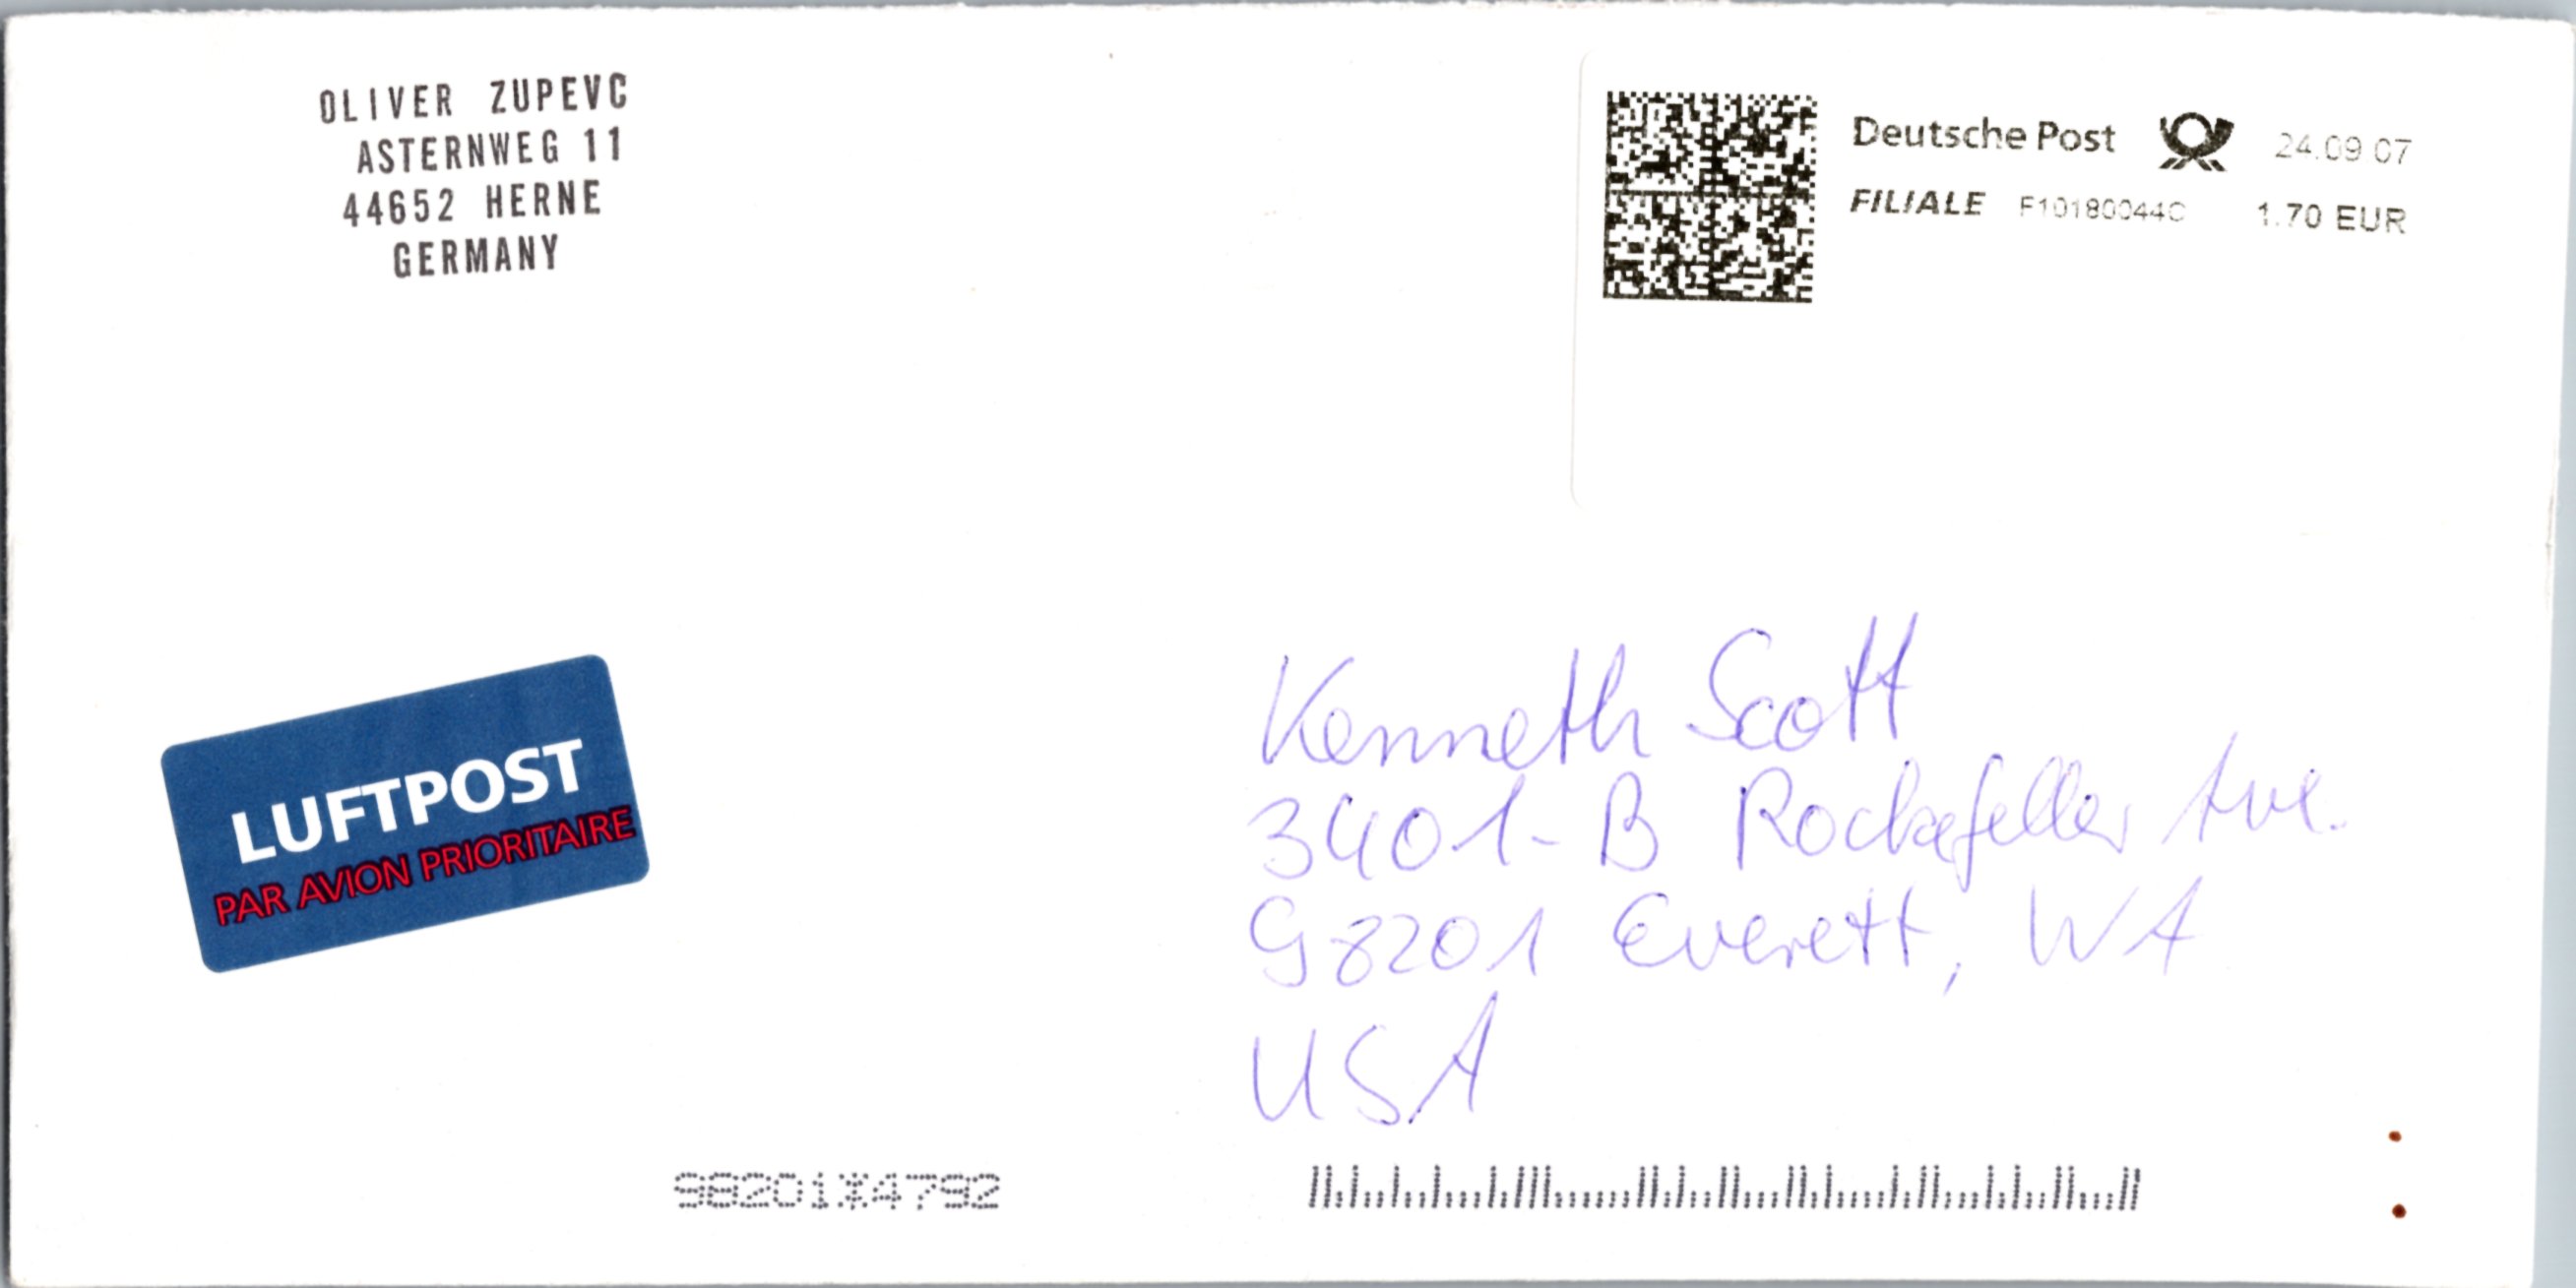 OLIVER ZUPEVC
ASTERNWEG 11
44652 HERNE
GERMANY
Deutsche Post 24.09.07
FILIALE F10180044C 1.70 EUR
LUFTPOST
PAR AVION PRIORITAIRE
Kenneth Scott
3401-B Rockefeller Ave.
98201 Everett, WA
USA
98201*4792